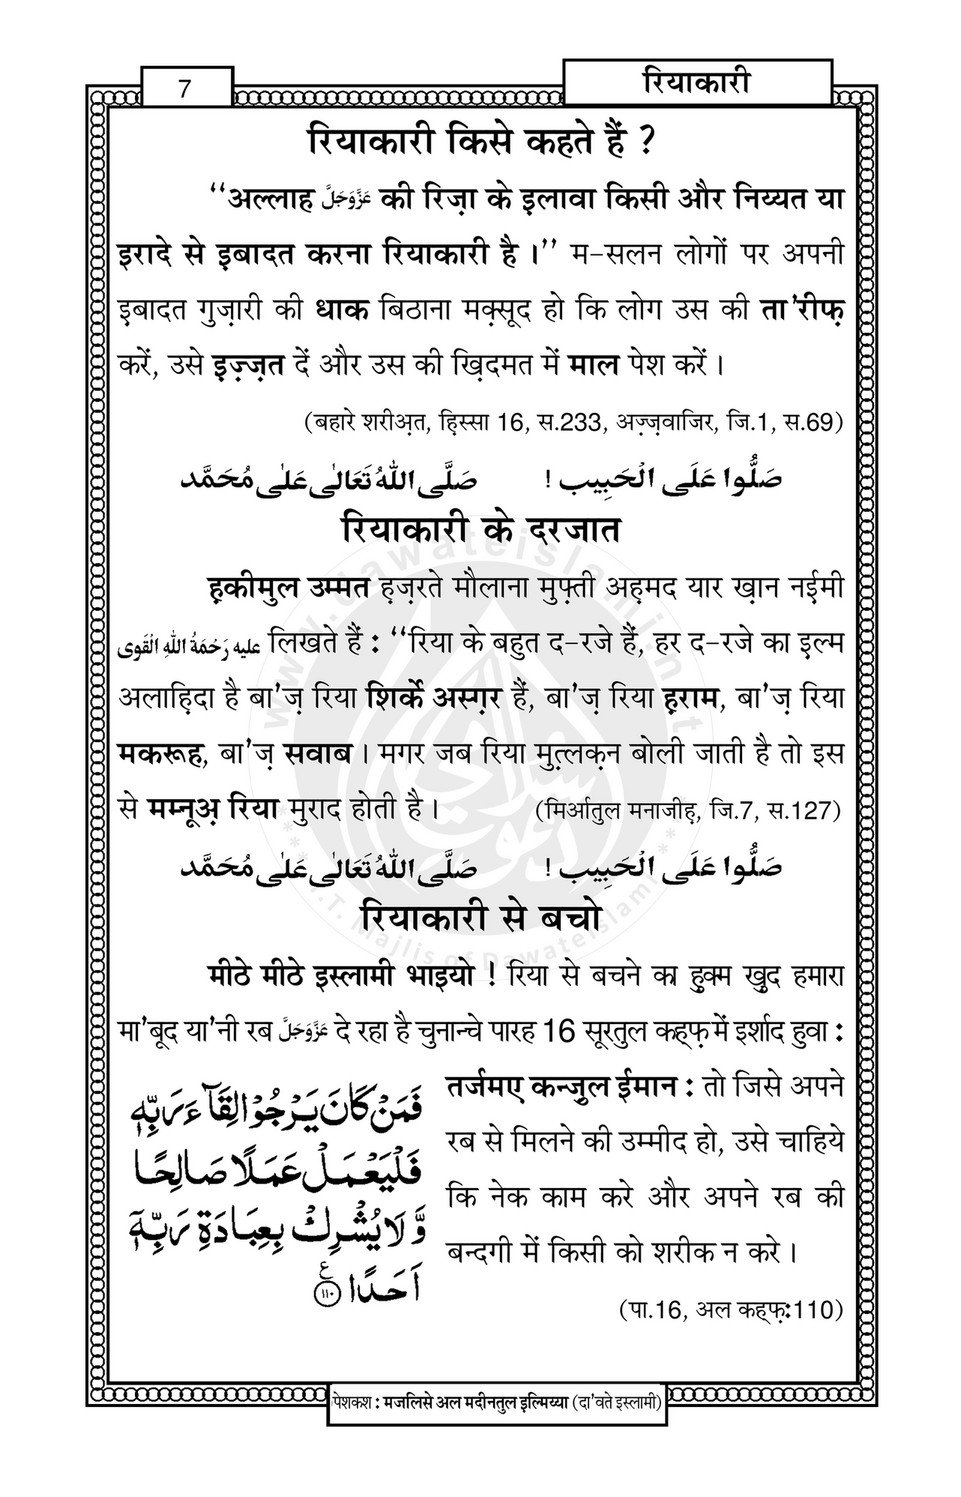 7
रियाकारी
रियाकारी किसे कहते हैं ?
‘‘अल्लाह عَزَّوَجَلَّ की रिज़ा के इलावा किसी और निय्यत या
इरादे से इबादत करना रियाकारी है ।’’ म-सलन लोगों पर अपनी
इबादत गुज़ारी की धाक बिठाना मक़्सूद हो कि लोग उस की ता'रीफ़
करें, उसे इज़्ज़त दें और उस की ख़िदमत में माल पेश करें ।
(बहारे शरीअ़त, हि़स्सा 16, स.233, अज़्ज़वाजिर, जि.1, स.69)
صَلُّوا عَلَى الْحَبِيب ! صَلَّى اللهُ تَعَالٰى عَلٰى مُحَمَّد
रियाकारी के दरजात
ह़कीमुल उम्मत ह़ज़रते मौलाना मुफ़्ती अह़मद यार ख़ान नईमी
عليه رَحْمَةُ اللهِ الْقَوِى लिखते हैं : ‘‘रिया के बहुत द-रजे हैं, हर द-रजे का हुक्म
अलाह़िदा है बा'ज़ रिया शिर्के अस्ग़र हैं, बा'ज़ रिया ह़राम, बा'ज़ रिया
मकरूह, बा'ज़ सवाब । मगर जब रिया मुत़्लक़न बोली जाती है तो इस
से मम्नूअ़ रिया मुराद होती है ।
(मिर्आतुल मनाजीह़, जि.7, स.127)
صَلُّوا عَلَى الْحَبِيب ! صَلَّى اللهُ تَعَالٰى عَلٰى مُحَمَّد
रियाकारी से बचो
मीठे मीठे इस्लामी भाइयो ! रिया से बचने का हुक्म खुद हमारा
मा'बूद या'नी रब عَزَّوَجَلَّ दे रहा है चुनान्चे पारह 16 सूरतुल कह्फ़ में इर्शाद हुवा :
فَمَنْ كَانَ يَرْجُوْا لِقَآءَ رَبِّهٖ
فَلْيَعْمَلْ عَمَلًا صَالِحًا
وَّ لَا يُشْرِكْ بِعِبَادَةِ رَبِّهٖۤ
اَحَدًا ۠﴿۱۱۰﴾
तर्जमए कन्ज़ुल ईमान : तो जिसे अपने
रब से मिलने की उम्मीद हो, उसे चाहिये
कि नेक काम करे और अपने रब की
बन्दगी में किसी को शरीक न करे ।
(पा.16, अल कह्फ़:110)
पेशकश : मजलिसे अल मदीनतुल इल्मिय्या (दा'वते इस्लामी)
www.dawateislami.net
I.T. Majlis of Dawateislami